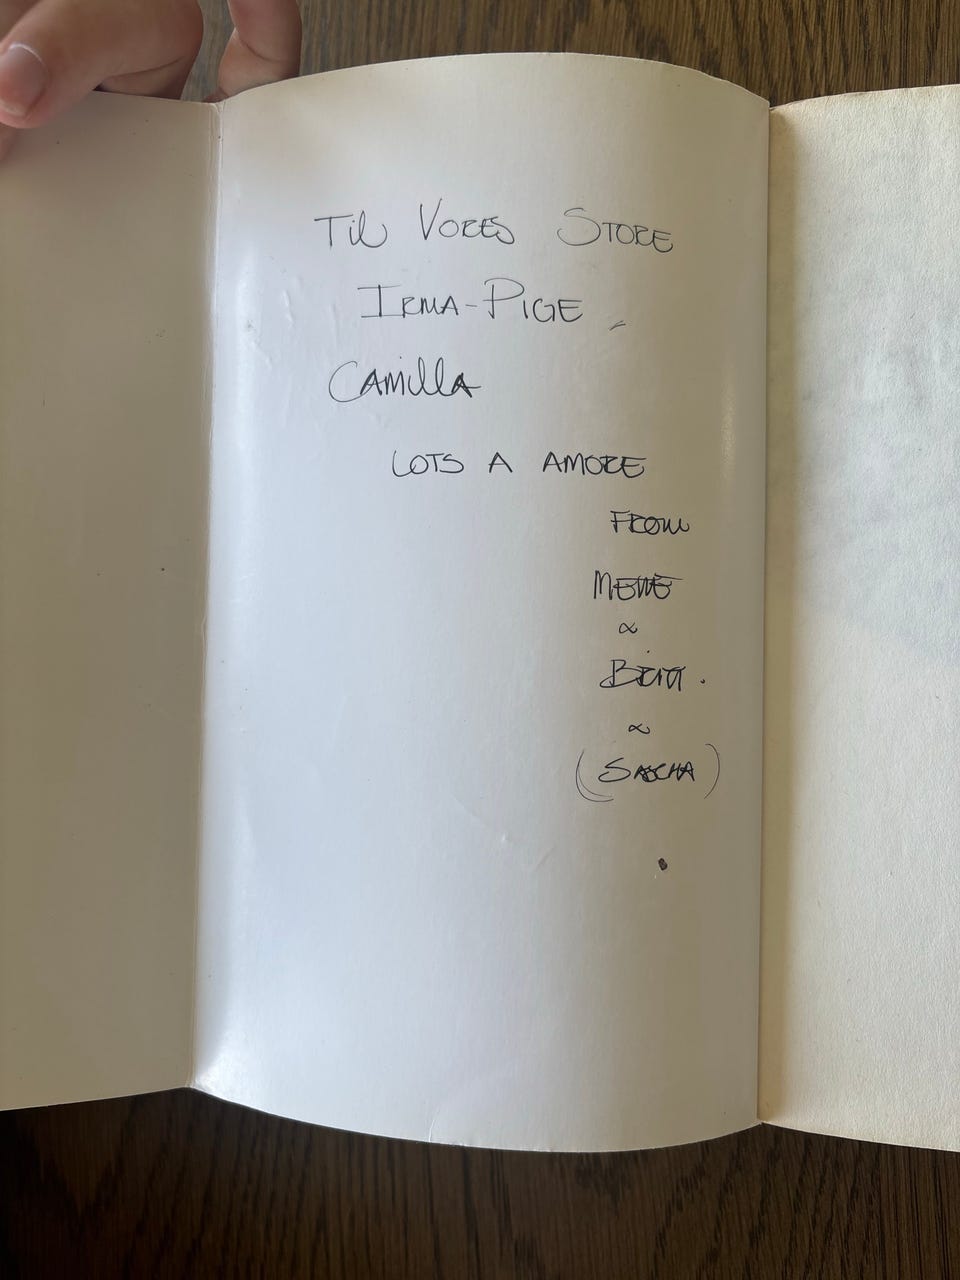 Til Vores Store
Irma-Pige,
Camilla
Lots a amore
from
Mette
&
Britt.
&
(Sascha)